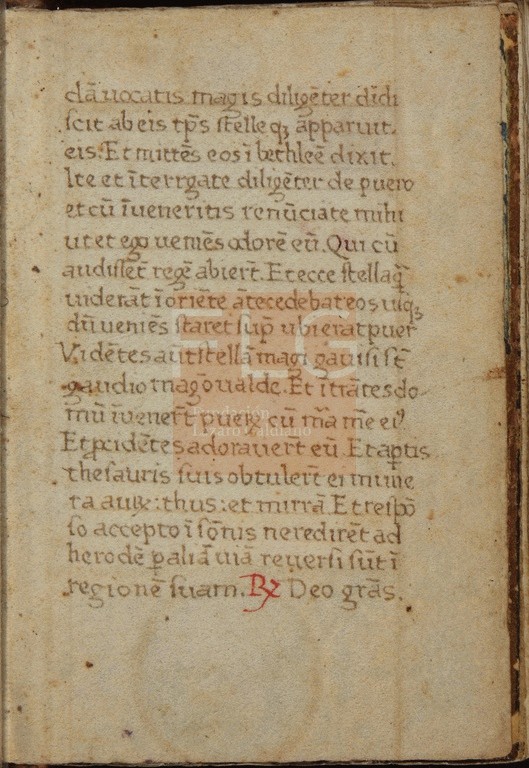 clā uocatis magis diligēter didi
scit ab eis tp̄s stelle q; apparuit
eis. Et mittēs eos ī bethleē dixit.
Ite et īterrgate diligēter de puero
et cū īueneritis renūciate mihi
ut et ego ueniēs adorē eū. Qui cū
audissēt regē abiert̄. Et ecce stella q̄
uiderāt ī oriēte ātecedebat eos usq;
dū ueniēs staret sup̄ ubi erat puer
Vidētes aut stellā magi gauisi st̄
gaudio magō ualde. Et ītrātes do-
mū īuenert̄ pueꝝ cū mīa mr̄e ei⁹
Et ꝓcidētes adorauert eū. Et aptis
thesauris suis obtulert̄ ei mune
ra auꝝ: thus: et mirrā. Et respō
so accepto ī sōnis ne redirēt ad
herodē ꝑ aliā uiā reuersi sūt ī
regionē suam. ℟ Deo grās.
FLG
Fundación
Lázaro Galdiano